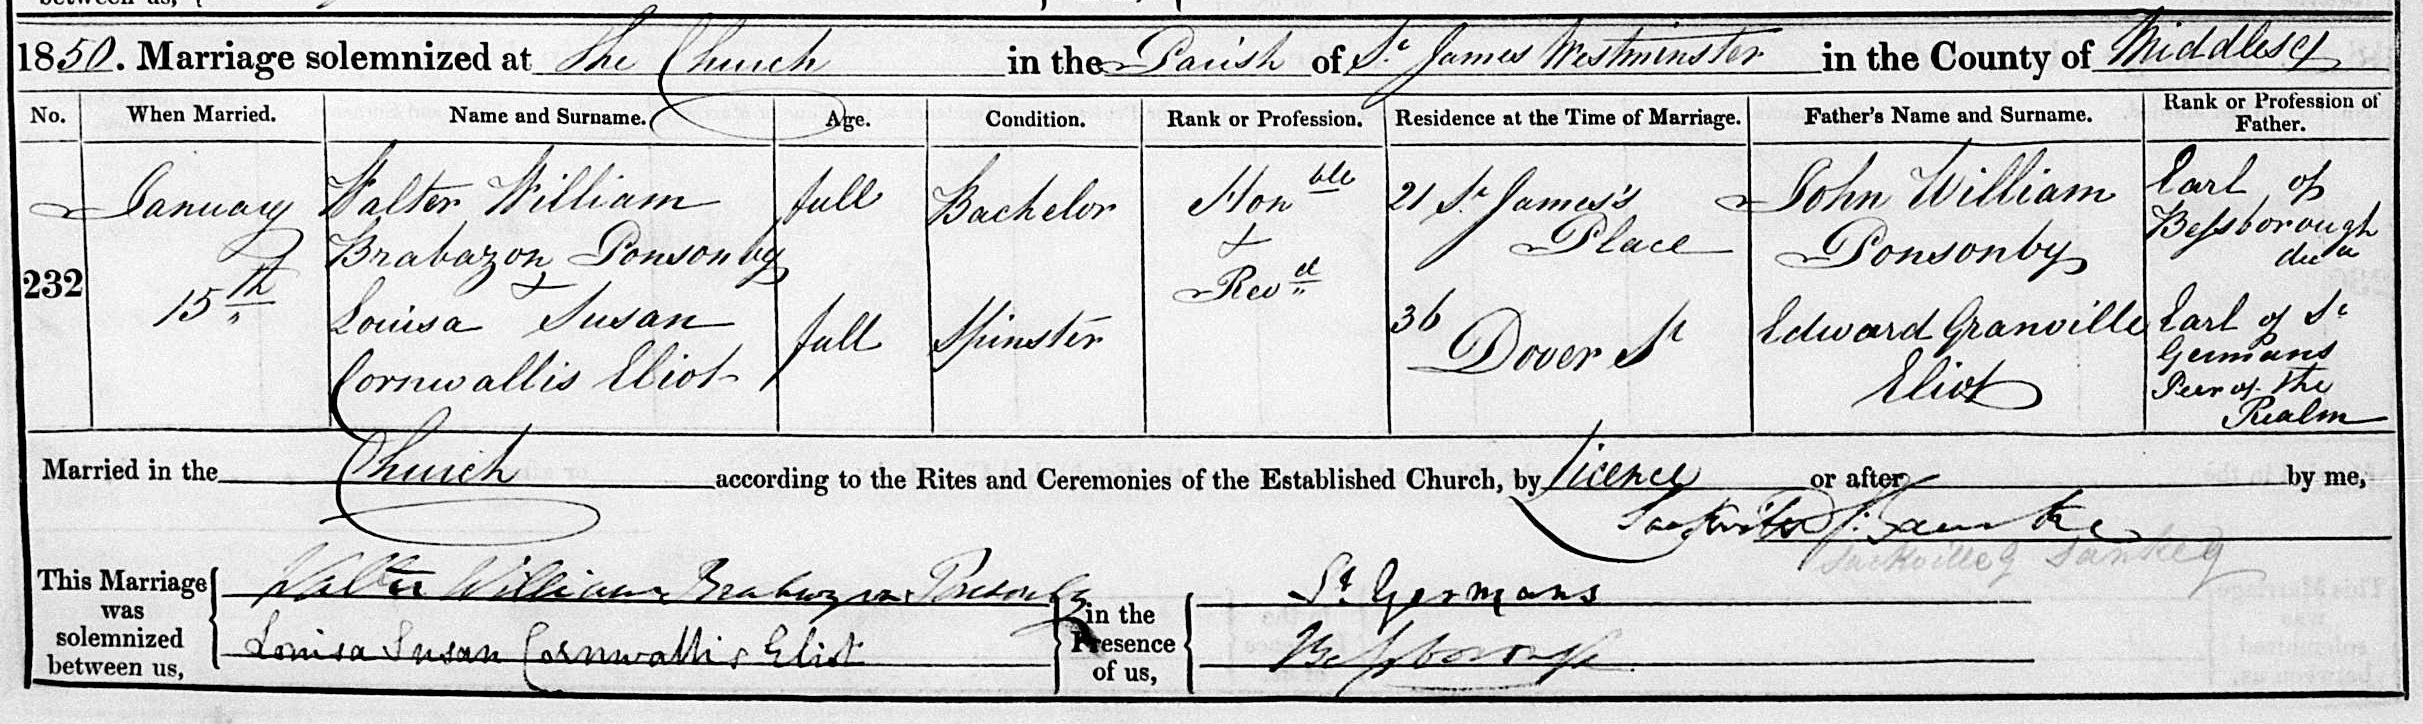 1850. Marriage solemnized at the Church in the Parish of St. James Westminster in the County of Middlesex
No. When Married. Name and Surname. Age. Condition. Rank or Profession. Residence at the Time of Marriage. Father's Name and Surname. Rank or Profession of Father.
232
January 15th
Walter William
Brabazon Ponsonby
full
Bachelor
Honble
+
Revd
21 St. James's
Place
John William
Ponsonby
Earl of
Bessborough
+
Louisa Susan
Cornwallis Eliot
full
Spinster
36
Dover St
Edward Granville
Eliot
Earl of St
Germans
Peer of the
Realm
Married in the Church according to the Rites and Ceremonies of the Established Church, by Licence or after by me,
This Marriage was solemnized between us,
Walter William Brabazon Ponsonby
Louisa Susan Cornwallis Eliot
in the Presence of us,
St. Germans
Bessborough